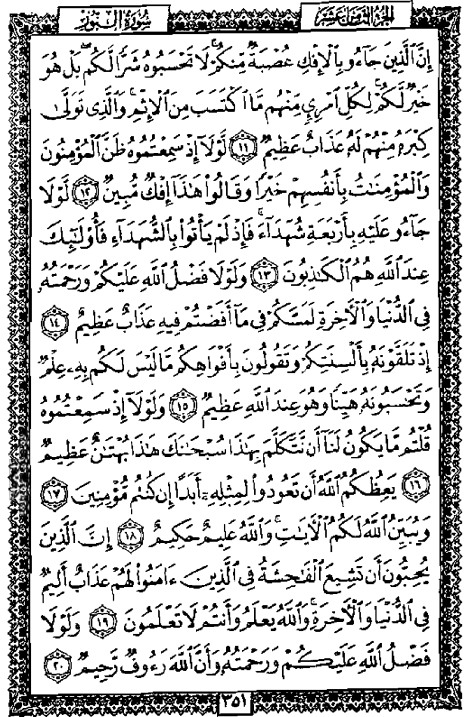 سُورَةُ النُّورِ الجُزْءُ الثَّامِنَ عَشَرَ
إِنَّ ٱلَّذِينَ جَآءُو بِٱلْإِفْكِ عُصْبَةٌ مِّنكُمْ ۚ لَا تَحْسَبُوهُ شَرًّا لَّكُم ۖ بَلْ هُوَ
خَيْرٌ لَّكُمْ ۚ لِكُلِّ ٱمْرِئٍ مِّنْهُم مَّا ٱكْتَسَبَ مِنَ ٱلْإِثْمِ ۚ وَٱلَّذِى تَوَلَّىٰ
كِبْرَهُۥ مِنْهُمْ لَهُۥ عَذَابٌ عَظِيمٌ ١١ لَّوْلَآ إِذْ سَمِعْتُمُوهُ ظَنَّ ٱلْمُؤْمِنُونَ
وَٱلْمُؤْمِنَٰتُ بِأَنفُسِهِمْ خَيْرًا وَقَالُوا۟ هَٰذَآ إِفْكٌ مُّبِينٌ ١٢ لَّوْلَا
جَآءُو عَلَيْهِ بِأَرْبَعَةِ شُهَدَآءَ ۚ فَإِذْ لَمْ يَأْتُوا۟ بِٱلشُّهَدَآءِ فَأُو۟لَٰٓئِكَ
عِندَ ٱللَّهِ هُمُ ٱلْكَٰذِبُونَ ١٣ وَلَوْلَا فَضْلُ ٱللَّهِ عَلَيْكُمْ وَرَحْمَتُهُۥ
فِى ٱلدُّنْيَا وَٱلْءَاخِرَةِ لَمَسَّكُمْ فِى مَآ أَفَضْتُمْ فِيهِ عَذَابٌ عَظِيمٌ ١٤
إِذْ تَلَقَّوْنَهُۥ بِأَلْسِنَتِكُمْ وَتَقُولُونَ بِأَفْوَاهِكُم مَّا لَيْسَ لَكُم بِهِۦ عِلْمٌ
وَتَحْسَبُونَهُۥ هَيِّنًا وَهُوَ عِندَ ٱللَّهِ عَظِيمٌ ١٥ وَلَوْلَآ إِذْ سَمِعْتُمُوهُ
قُلْتُم مَّا يَكُونُ لَنَآ أَن نَّتَكَلَّمَ بِهَٰذَا سُبْحَٰنَكَ هَٰذَا بُهْتَٰنٌ عَظِيمٌ
١٦ يَعِظُكُمُ ٱللَّهُ أَن تَعُودُوا۟ لِمِثْلِهِۦٓ أَبَدًا إِن كُنتُم مُّؤْمِنِينَ ١٧
وَيُبَيِّنُ ٱللَّهُ لَكُمُ ٱلْءَايَٰتِ ۚ وَٱللَّهُ عَلِيمٌ حَكِيمٌ ١٨ إِنَّ ٱلَّذِينَ
يُحِبُّونَ أَن تَشِيعَ ٱلْفَٰحِشَةُ فِى ٱلَّذِينَ ءَامَنُوا۟ لَهُمْ عَذَابٌ أَلِيمٌ
فِى ٱلدُّنْيَا وَٱلْءَاخِرَةِ ۚ وَٱللَّهُ يَعْلَمُ وَأَنتُمْ لَا تَعْلَمُونَ ١٩ وَلَوْلَا
فَضْلُ ٱللَّهِ عَلَيْكُمْ وَرَحْمَتُهُۥ وَأَنَّ ٱللَّهَ رَءُوفٌ رَّحِيمٌ ٢٠
٣٥١